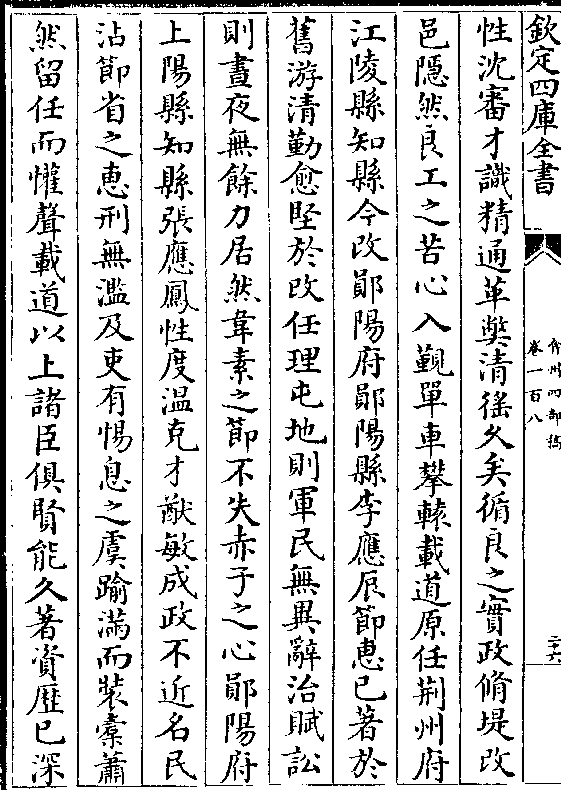 欽定四庫全書
弇州四部稿
卷一百八
二十六
性沈審才識精通革獘清徭久矣循良之實政脩堤改
邑隱然良工之苦心入覲單車攀轅載道原任荆州府
江陵縣知縣今改鄖陽府鄖陽縣李應辰節惠已著於
舊游清勤愈堅於改任理屯地則軍民無異辭治賦訟
則晝夜無餘力居然韋素之節不失赤子之心鄖陽府
上陽縣知縣張應鳳性度温克才猷敏成政不近名民
沾節省之恵刑無濫及吏有惕息之虞踰滿而裝橐蕭
然留任而懽聲載道以上諸臣俱賢能久著資歴已深